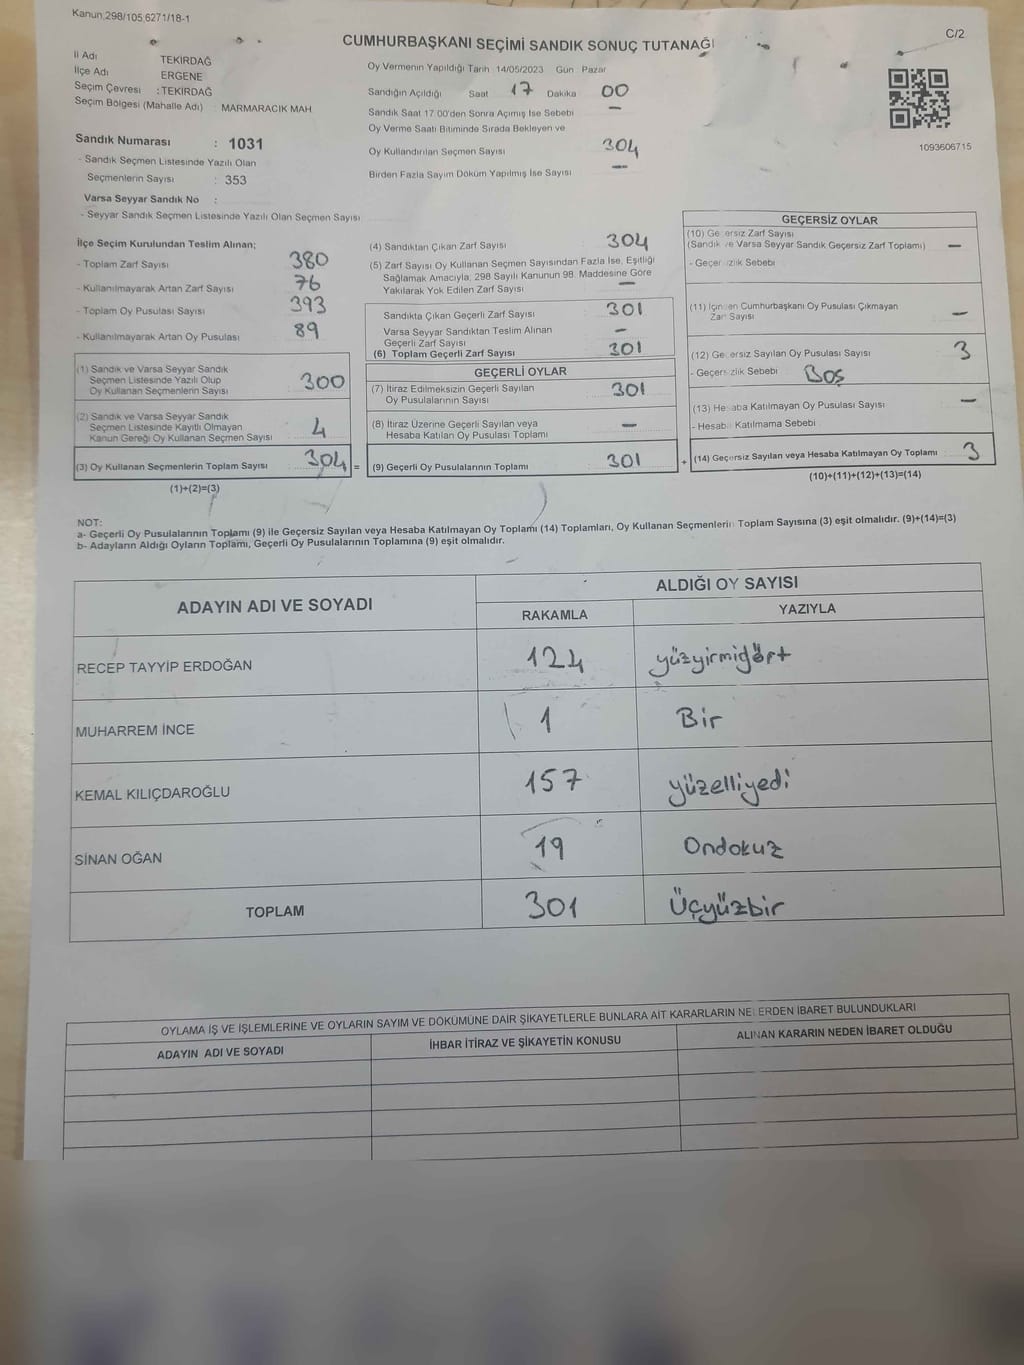 Kanun;298/105,6271/18-1
C/2
CUMHURBAŞKANI SEÇİMİ SANDIK SONUÇ TUTANAĞI
İl Adı TEKİRDAĞ
İlçe Adı ERGENE
Seçim Çevresi : TEKİRDAĞ
Seçim Bölgesi (Mahalle Adı) : MARMARACIK MAH
Sandık Numarası : 1031
- Sandık Seçmen Listesinde Yazılı Olan
Seçmenlerin Sayısı : 353
Varsa Seyyar Sandık No :
- Seyyar Sandık Seçmen Listesinde Yazılı Olan Seçmen Sayısı
Oy Vermenin Yapıldığı Tarih 14/05/2023 Gün Pazar
Sandığın Açıldığı Saat 17 Dakika 00
Sandık Saat 17:00'den Sonra Açımış İse Sebebi —
Oy Verme Saati Bitiminde Sırada Bekleyen ve
Oy Kullandırılan Seçmen Sayısı 304
Birden Fazla Sayım Döküm Yapılmış İse Sayısı —
1093606715
İlçe Seçim Kurulundan Teslim Alınan;
- Toplam Zarf Sayısı 380
- Kullanılmayarak Artan Zarf Sayısı 76
- Toplam Oy Pusulası Sayısı 393
- Kullanılmayarak Artan Oy Pusulası 89
(1) Sandık ve Varsa Seyyar Sandık
Seçmen Listesinde Yazılı Olup
Oy Kullanan Seçmenlerin Sayısı 300
(2) Sandık ve Varsa Seyyar Sandık
Seçmen Listesinde Kayıtlı Olmayan
Kanun Gereği Oy Kullanan Seçmen Sayısı 4
(3) Oy Kullanan Seçmenlerin Toplam Sayısı 304 =
(1)+(2)=(3)
(4) Sandıktan Çıkan Zarf Sayısı 304
(5) Zarf Sayısı Oy Kullanan Seçmen Sayısından Fazla İse, Eşitliği
Sağlamak Amacıyla; 298 Sayılı Kanunun 98. Maddesine Göre
Yakılarak Yok Edilen Zarf Sayısı —
Sandıkta Çıkan Geçerli Zarf Sayısı 301
Varsa Seyyar Sandıktan Teslim Alınan
Geçerli Zarf Sayısı —
(6) Toplam Geçerli Zarf Sayısı 301
GEÇERLİ OYLAR
(7) İtiraz Edilmeksizin Geçerli Sayılan
Oy Pusulalarının Sayısı 301
(8) İtiraz Üzerine Geçerli Sayılan veya
Hesaba Katılan Oy Pusulası Toplamı —
(9) Geçerli Oy Pusulalarının Toplamı 301 +
GEÇERSİZ OYLAR
(10) Geçersiz Zarf Sayısı
(Sandık ve Varsa Seyyar Sandık Geçersiz Zarf Toplamı) —
- Geçersizlik Sebebi
(11) İçinden Cumhurbaşkanı Oy Pusulası Çıkmayan
Zarf Sayısı —
(12) Geçersiz Sayılan Oy Pusulası Sayısı 3
- Geçersizlik Sebebi Boş
(13) Hesaba Katılmayan Oy Pusulası Sayısı —
- Hesaba Katılmama Sebebi
(14) Geçersiz Sayılan veya Hesaba Katılmayan Oy Toplamı 3
(10)+(11)+(12)+(13)=(14)
NOT:
a- Geçerli Oy Pusulalarının Toplamı (9) ile Geçersiz Sayılan veya Hesaba Katılmayan Oy Toplamı (14) Toplamları, Oy Kullanan Seçmenlerin Toplam Sayısına (3) eşit olmalıdır. (9)+(14)=(3)
b- Adayların Aldığı Oyların Toplamı, Geçerli Oy Pusulalarının Toplamına (9) eşit olmalıdır.
ADAYIN ADI VE SOYADI ALDIĞI OY SAYISI
RAKAMLA YAZIYLA
RECEP TAYYİP ERDOĞAN 124 yüzyirmidört
MUHARREM İNCE 1 Bir
KEMAL KILIÇDAROĞLU 157 yüzelliyedi
SİNAN OĞAN 19 Ondokuz
TOPLAM 301 Üçyüzbir
OYLAMA İŞ VE İŞLEMLERİNE VE OYLARIN SAYIM VE DÖKÜMÜNE DAİR ŞİKAYETLERLE BUNLARA AİT KARARLARIN NELERDEN İBARET BULUNDUKLARI
ADAYIN ADI VE SOYADI İHBAR İTİRAZ VE ŞİKAYETİN KONUSU ALINAN KARARIN NEDEN İBARET OLDUĞU